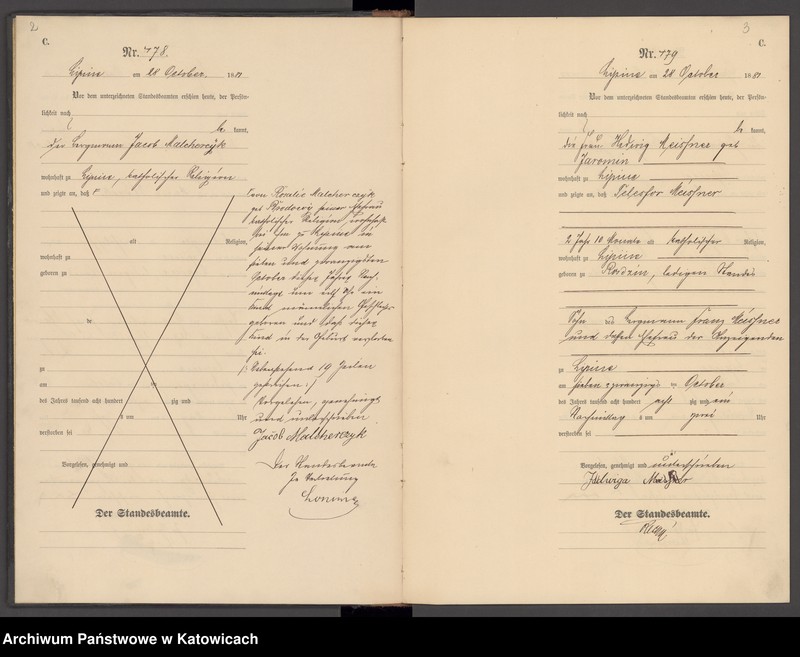 2
C.
Nr. 178.
Lipine am 28 October. 1881
Vor dem unterzeichneten Standesbeamten erschien heute, der Persön-
lichkeit nach
be kannt,
der Bergmann Jacob Malcherczyk
wohnhaft zu Lipine, katholischer Religion
und zeigte an, daß
alt Religion,
wohnhaft zu
geboren zu
de
zu
am
des Jahres tausend acht hundert zig und
um Uhr
verstorben sei
Vorgelesen, genehmigt und
Der Standesbeamte.
von Rosalie Malcherczyk
geb seiner Ehefrau
katholischer Religion wohnhaft
bei ihm zu Lipine in
seiner Wohnung am
sieben und zwanzigsten
October dieses Jahres Nach-
mittags um elf Uhr ein
Kind männlichen Geschlechts
geboren und daß dieses
Kind in der Geburt verstorben
sei
Vorstehend 19 Zeilen
gestrichen.
Vorgelesen, genehmigt
und unterschrieben
Jacob Malcherczyk
Der Standesbeamte
In Vertretung
3
C.
Nr. 179
Lipine am 28 October 1881
Vor dem unterzeichneten Standesbeamten erschien heute, der Persön-
lichkeit nach
be kannt,
die Frau Hedwig Meissner geb
Jaromin
wohnhaft zu Lipine
und zeigte an, daß Telesfor Meissner
2 Jahr 10 Monate alt katholischer Religion,
wohnhaft zu Lipine
geboren zu Rosdzin, ledigen Standes
Sohn des Bergmann Franz Meissner
und dessen Ehefrau der Anzeigenden
zu Lipine
am sieben zwanzigs ten October
des Jahres tausend acht hundert acht zig und ein
Nachmittag s um zwei Uhr
verstorben sei
Vorgelesen, genehmigt und unterschrieben
Jadwiga
Der Standesbeamte.
Archiwum Państwowe w Katowicach